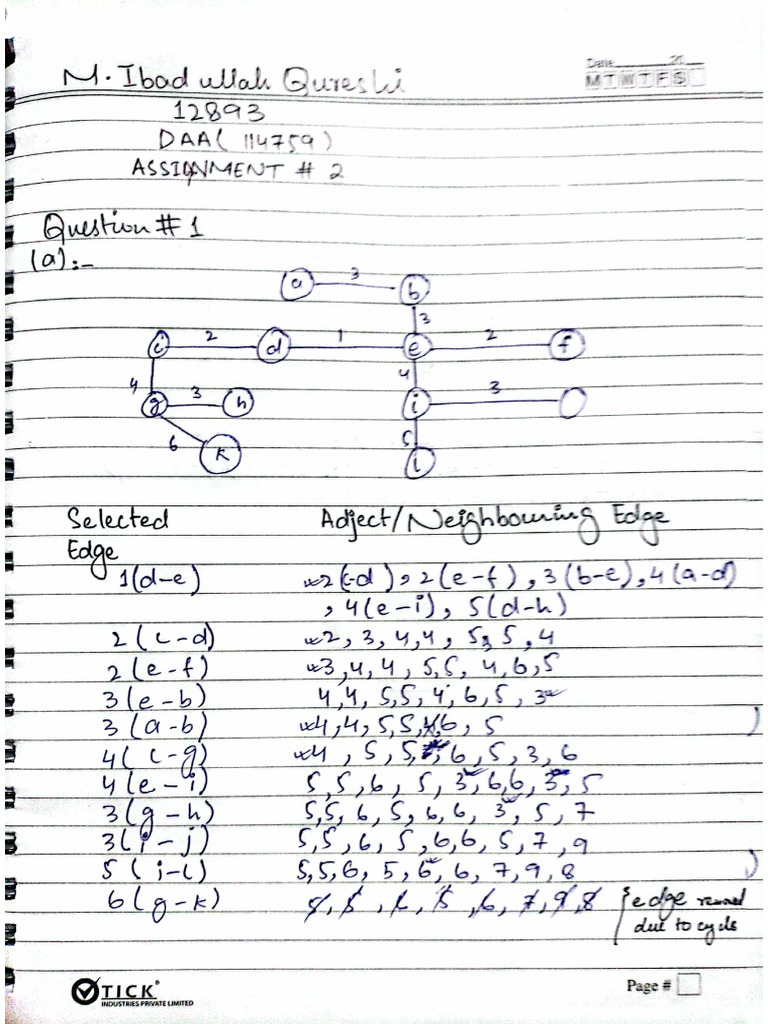 Date 20
M T W T F S
M. Ibad ullah Qureshi
12893
DAA( 114759 )
ASSIGNMENT # 2
Question # 1
(a) :-
a 3 b
3
c 2 d 1 e 2 f
4 4
g 3 h i 3
6 5
k l
Selected Adject/Neighbouring Edge
Edge
1(d-e) 2(c-d) , 2(e-f) , 3(b-e) , 4(a-d)
, 4(e-i) , 5(d-h)
2(c-d) 2, 3, 4, 4, 5, 5, 4
2(e-f) 3, 4, 4, 5, 5, 4, 6, 5
3(e-b) 4, 4, 5, 5, 4, 6, 5, 3
3(a-b) 4, 4, 5, 5, 4, 6, 5
4(c-g) 4, 5, 5, 6, 5, 3, 6
4(e-i) 5, 5, 6, 5, 3, 6, 6, 3, 5
3(g-h) 5, 5, 6, 5, 6, 6, 3, 5, 7
3(i-j) 5, 5, 6, 5, 6, 6, 5, 7, 9
5(i-l) 5, 5, 6, 5, 6, 6, 7, 9, 8
6(g-k) 5, 5, 6, 5, 6, 7, 9, 8 { edge
due to cycle
TICK
INDUSTRIES PRIVATE LIMITED
Page #